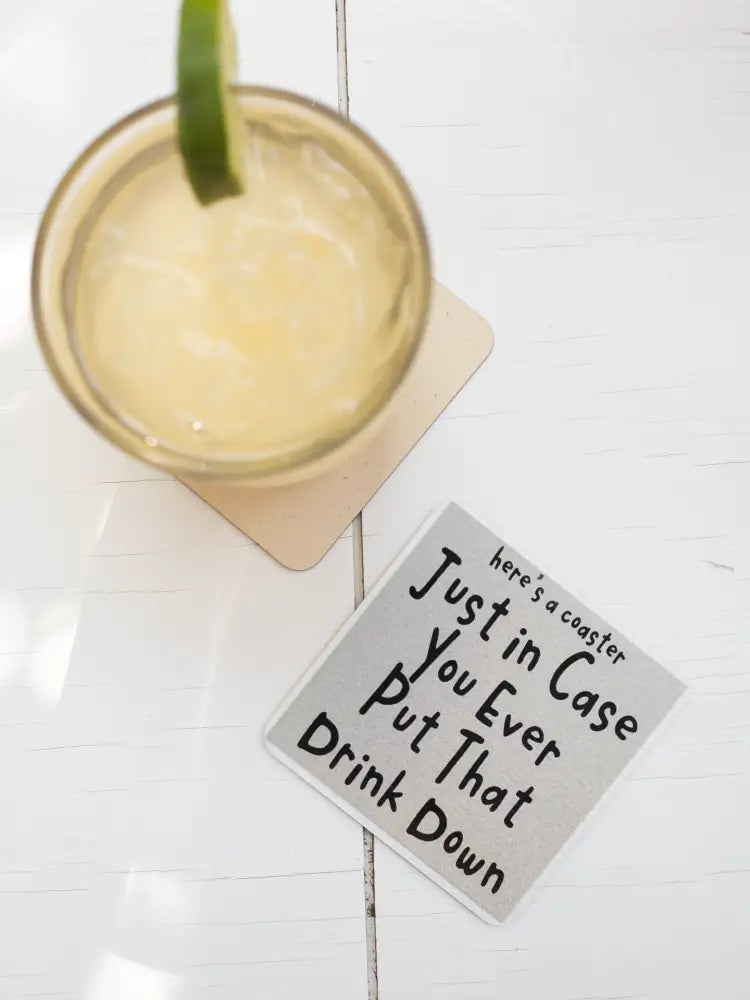 here's a coaster
Just in Case
You Ever
Put That
Drink Down